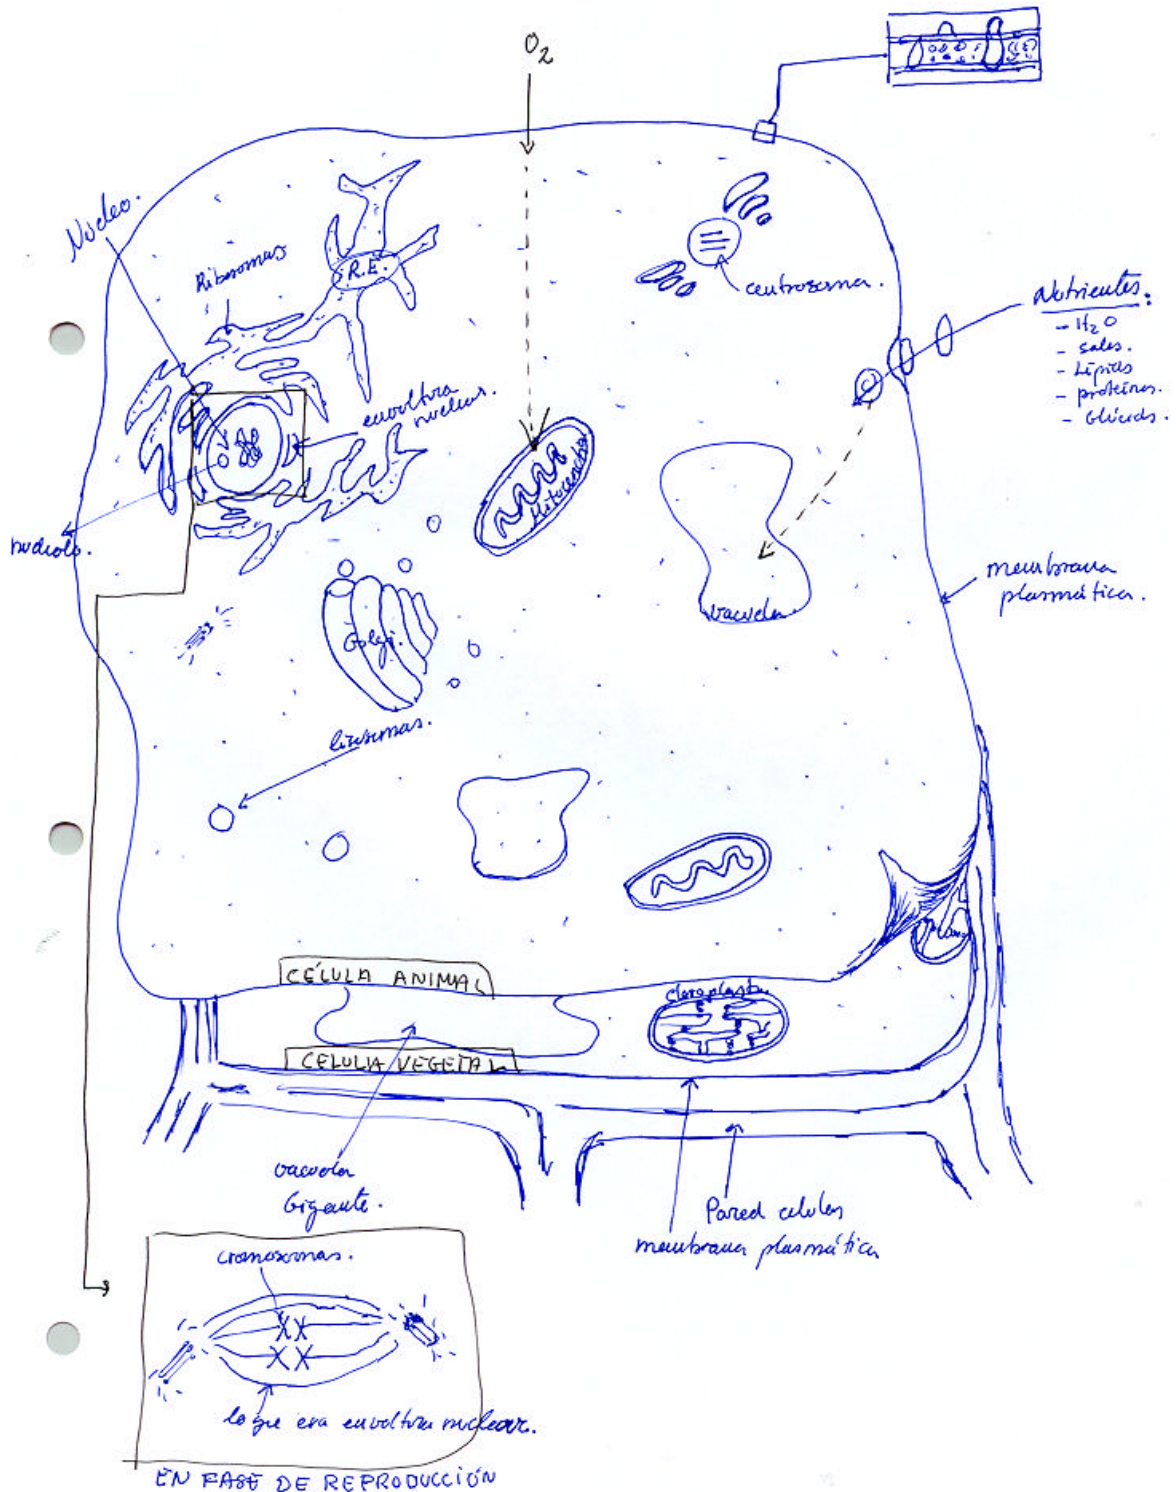 O2
Núcleo.
Ribosomas
R.E.
centrosoma.
Nutrientes:
- H2O
- sales.
- Lípidos
- proteínas.
- Glúcidos.
envoltura
nuclear.
Mitocondria
nucleolo.
membrana
plasmática.
vacuola
Golgi.
lisosomas.
CÉLULA ANIMAL
cloroplasto
CELULA VEGETAL
vacuola
Gigante.
Pared celular
membrana plasmática
cromosomas.
lo que era envoltura nuclear.
EN FASE DE REPRODUCCIÓN